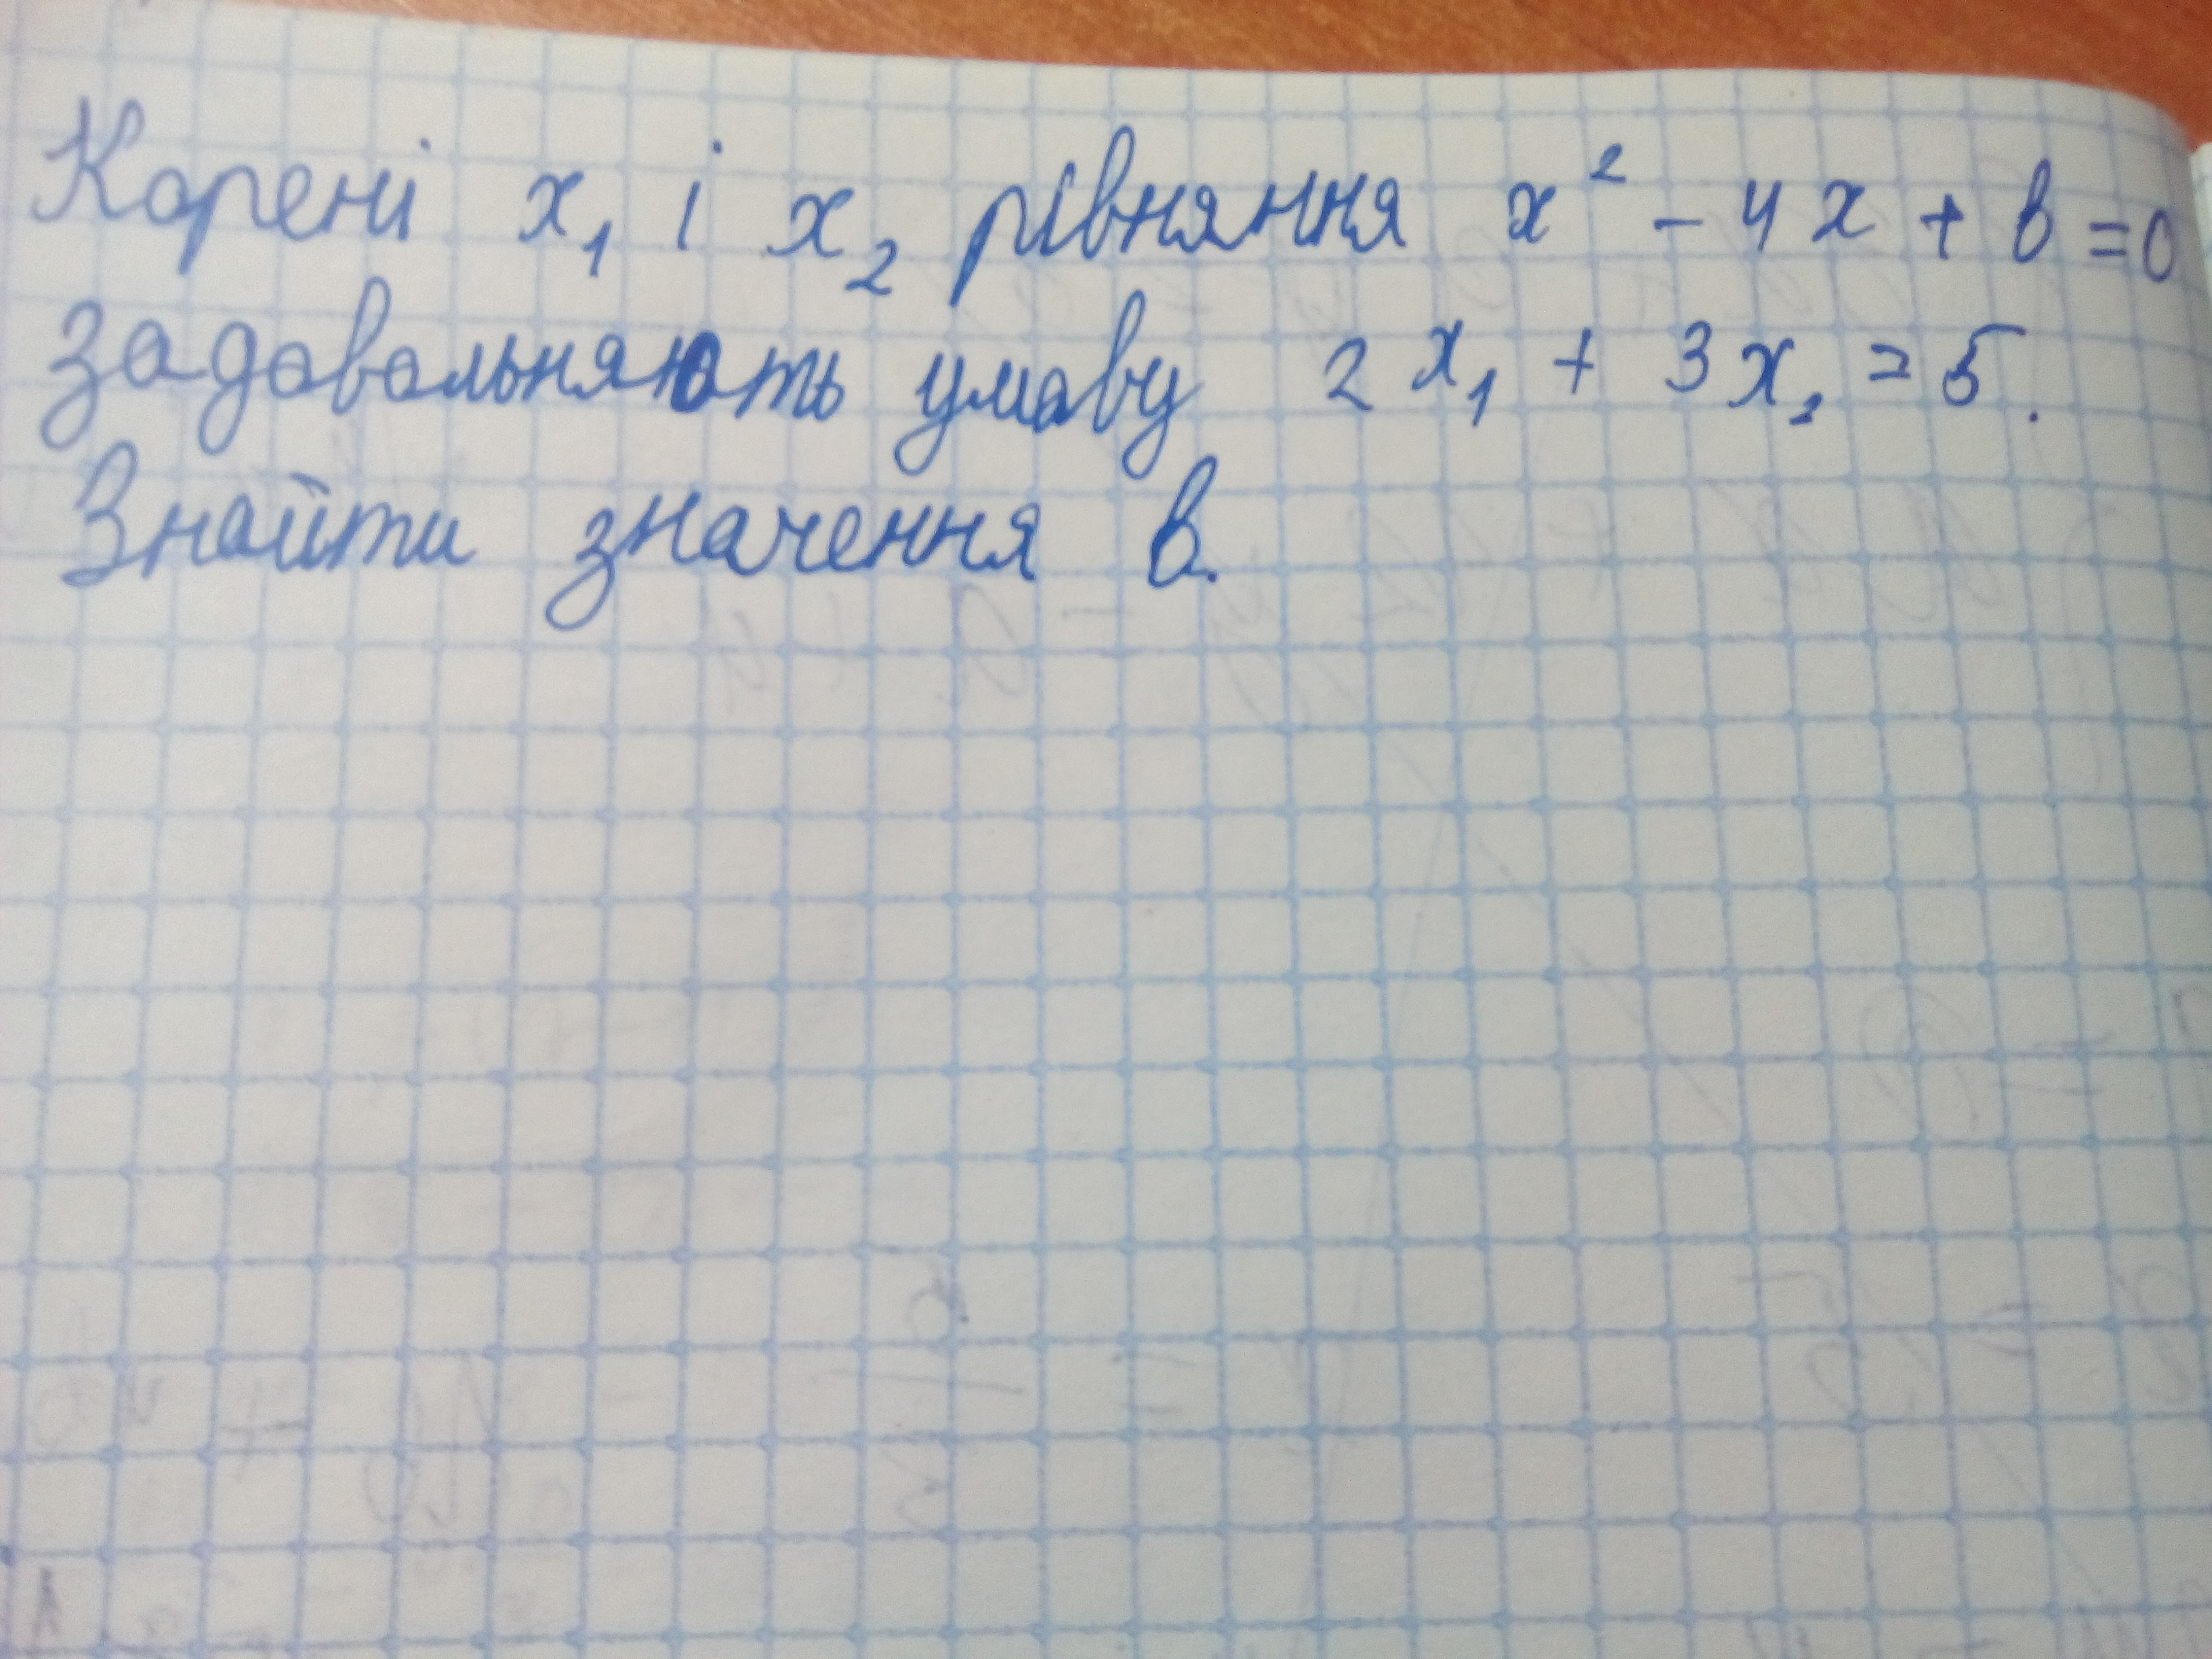 Корені x₁ і x₂ рівняння x² - 4x + в = 0
задовольняють умову 2x₁ + 3x₂ = 5.
Знайти значення в.